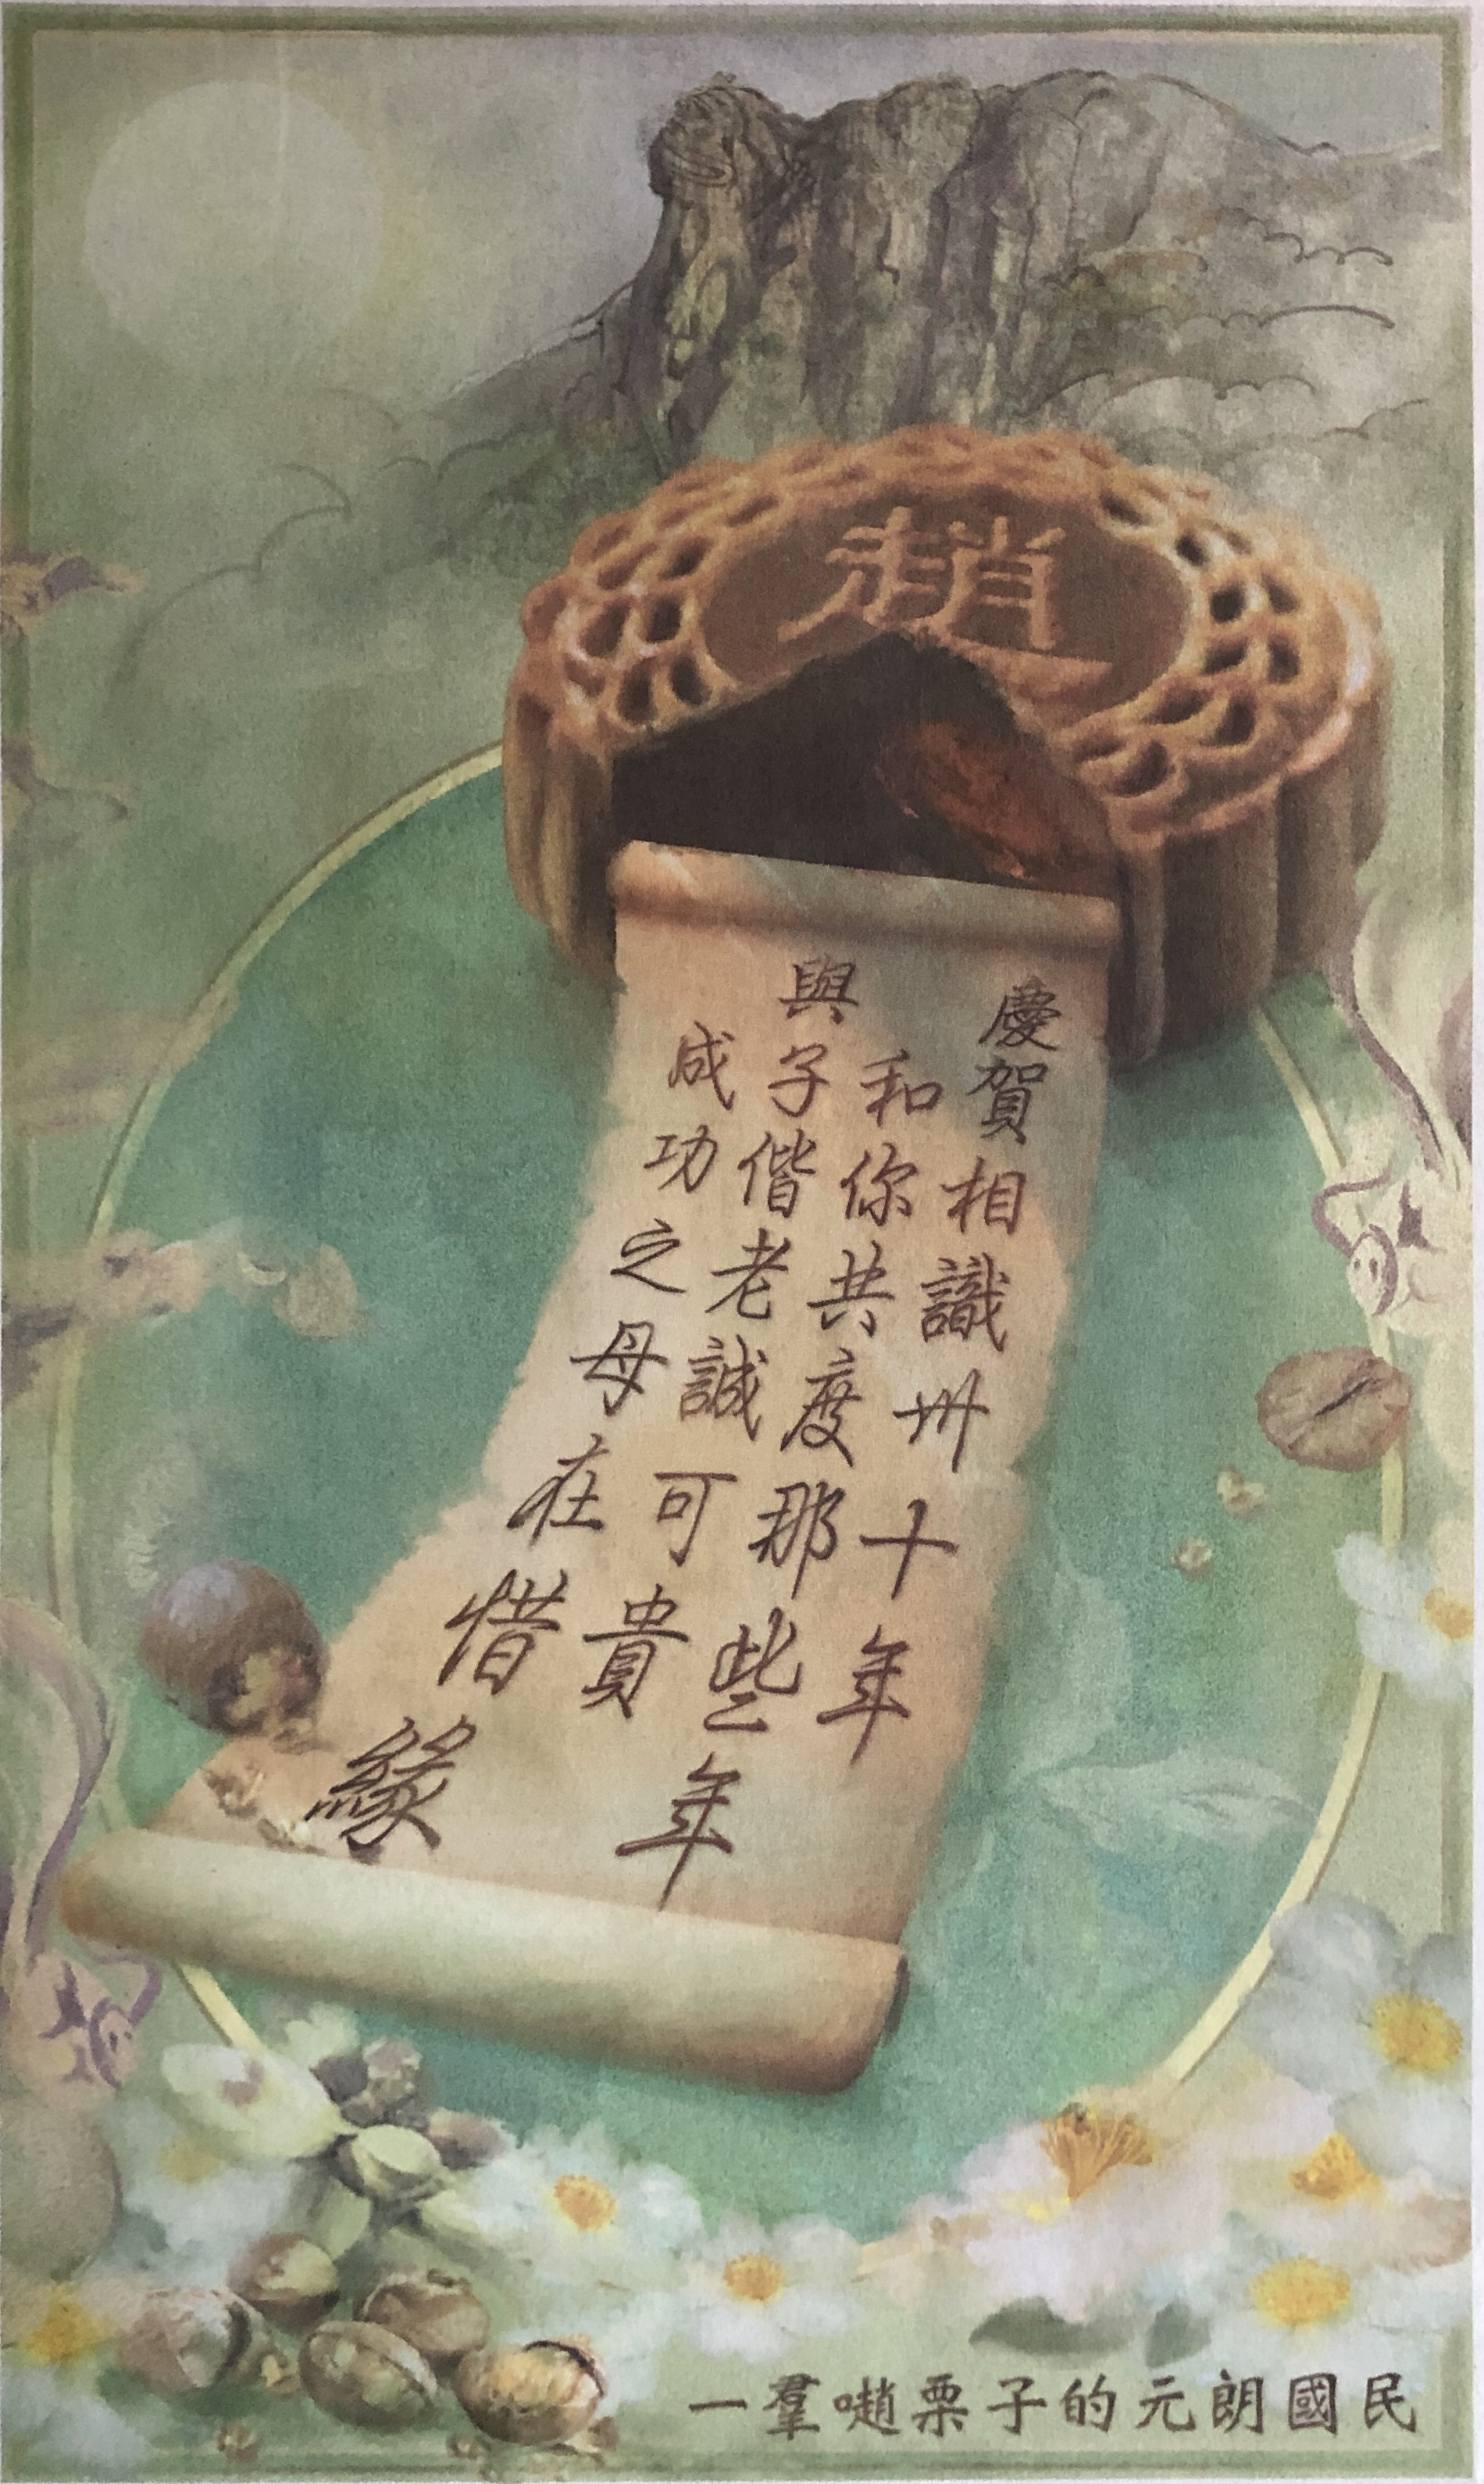 趙
慶賀相識卅十年
和你共度那些年
與子偕老誠可貴
成功之母在惜緣
一羣𡁻栗子的元朗國民